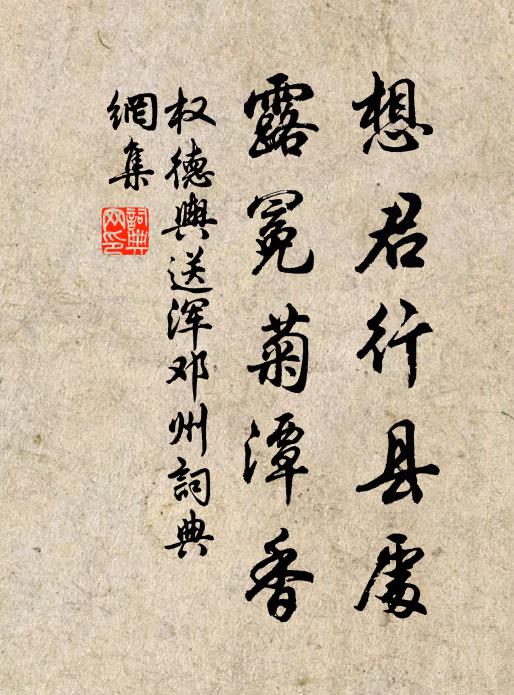 想君行县處
露冕菊潭香
权德輿送浑邓州詞典
網集
詞典
网印